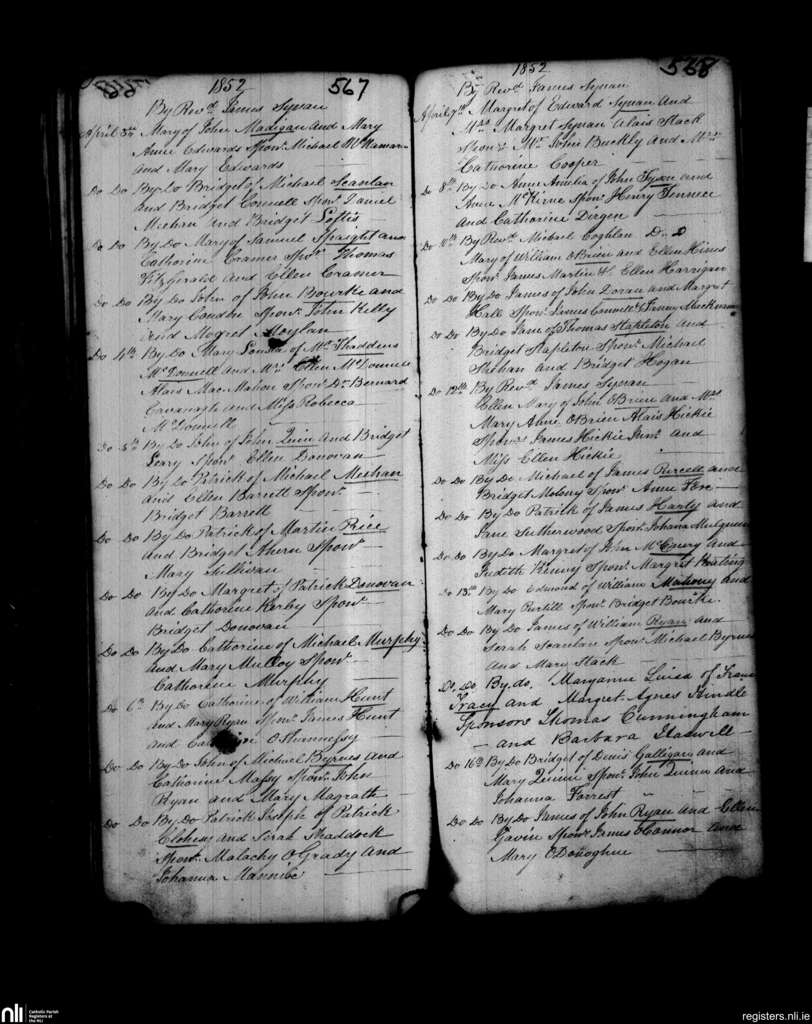 1852 567
By Revd. James Synan
April 3rd Mary of John Madigan and Mary
Anne Edwards Sponr. Michael McNamara
and Mary Edwards
Do Do By Do Bridget of Michael Scanlan
and Bridget Connell Sponr. Daniel
Meehan and Bridget Loftis
Do Do By Do Mary of Samuel Spaight and
Catherine Cramer Sponr. Thomas
FitzGerald and Ellen Cramer
Do Do By Do John of John Bourke and
Mary Condon Sponr. John Kelly
and Margret Moylan
Do 4th By Do Mary Louisa of Mr. Thaddeus
McDonnell and Mrs. Ellen McDonnell
Alais MacMahon Sponr. Dr. Bernard
Cavanagh and Miss Robecca
McDonnell
Do 5th By Do John of John Quin and Bridget
Leary Sponr. Ellen Donovan
Do Do By Do Patrick of Michael Meehan
and Ellen Barrett Sponr.
Bridget Barrett
Do Do By Do Patrick of Martin Rice
and Bridget Ahern Sponr.
Mary Sullivan
Do Do By Do Margret of Patrick Donovan
and Catherine Kerby Sponr.
Bridget Donovan
Do Do By Do Catherine of Michael Murphy
and Mary Mulloy Sponr.
Catherine Murphy
Do 6th By Do Catherine of William Hunt
and Mary Ryan Sponr. James Hunt
and OShannessy
Do Do By Do John of Michael Byrnes and
Catherine Massy Sponr. John
Ryan and Mary Magrath
Do Do By Do Patrick Joseph of Patrick
Clohesy and Sarah Shaddock
Sponr. Malachy OGrady and
Johanna
1852 568
By Revd. James Synan
April 7th Margret of Edward Synan and
Mrs. Margret Synan alais Stack
Sponrs. Mr. John Buckly and Mrs.
Catherine Cooper
Do 8th By Do Anne Amelia of John Tyson and
Anne Sponr. Henry
and Catharine Dergen
Do 11th By Revd. Michael Coghlan Do
Mary of William OBrien and Ellen Hines
Sponr. James Martin & Ellen Harrigan
Do Do By Do James of John Doran and Margret
Hall Sponr. James Connell & Fanny MacKnamara
Do Do By Do Jane of Thomas Stapleton and
Bridget Stapleton Sponr. Michael
Shehan and Bridget Hogan
Do 12th By Revd. James Synan
Ellen Mary of John OBrien and Mrs.
Mary Anne OBrien Alais Hickie
Sponrs. James Hickie Junr. and
Miss Ellen Hickie
Do Do By Do Michael of James Purcell and
Bridget Molony Sponr. Anne Fox
Do Do By Do Patrick of James Harty and
Jane Sutherwood Sponr. Johana
Do Do By Do Margret of John McCaury and
Judith Kenny Sponr. Margret Keating
Do 13th By Do Edmond of William Mahony and
Mary Purtill Sponr. Bridget Bourke.
Do Do By Do James of William Ryan and
Sarah Scanlan Sponr. Michael Byrnes
and Mary Stack
Do. Do By do. Maryanne Luisa of Francis
Tracy and Margret Agnes Hindle
Sponsors Thomas Cunningham
and Barbara
Do 16th By Do Bridget of Denis Galligan and
Mary Quinn Sponr. John Quinn and
Johanna Forrest
Do Do By Do James of John Ryan and Ellen
Gavin Sponr. James OConnor and
Mary ODonoghue
nli Catholic Parish Registers at the NLI
registers.nli.ie